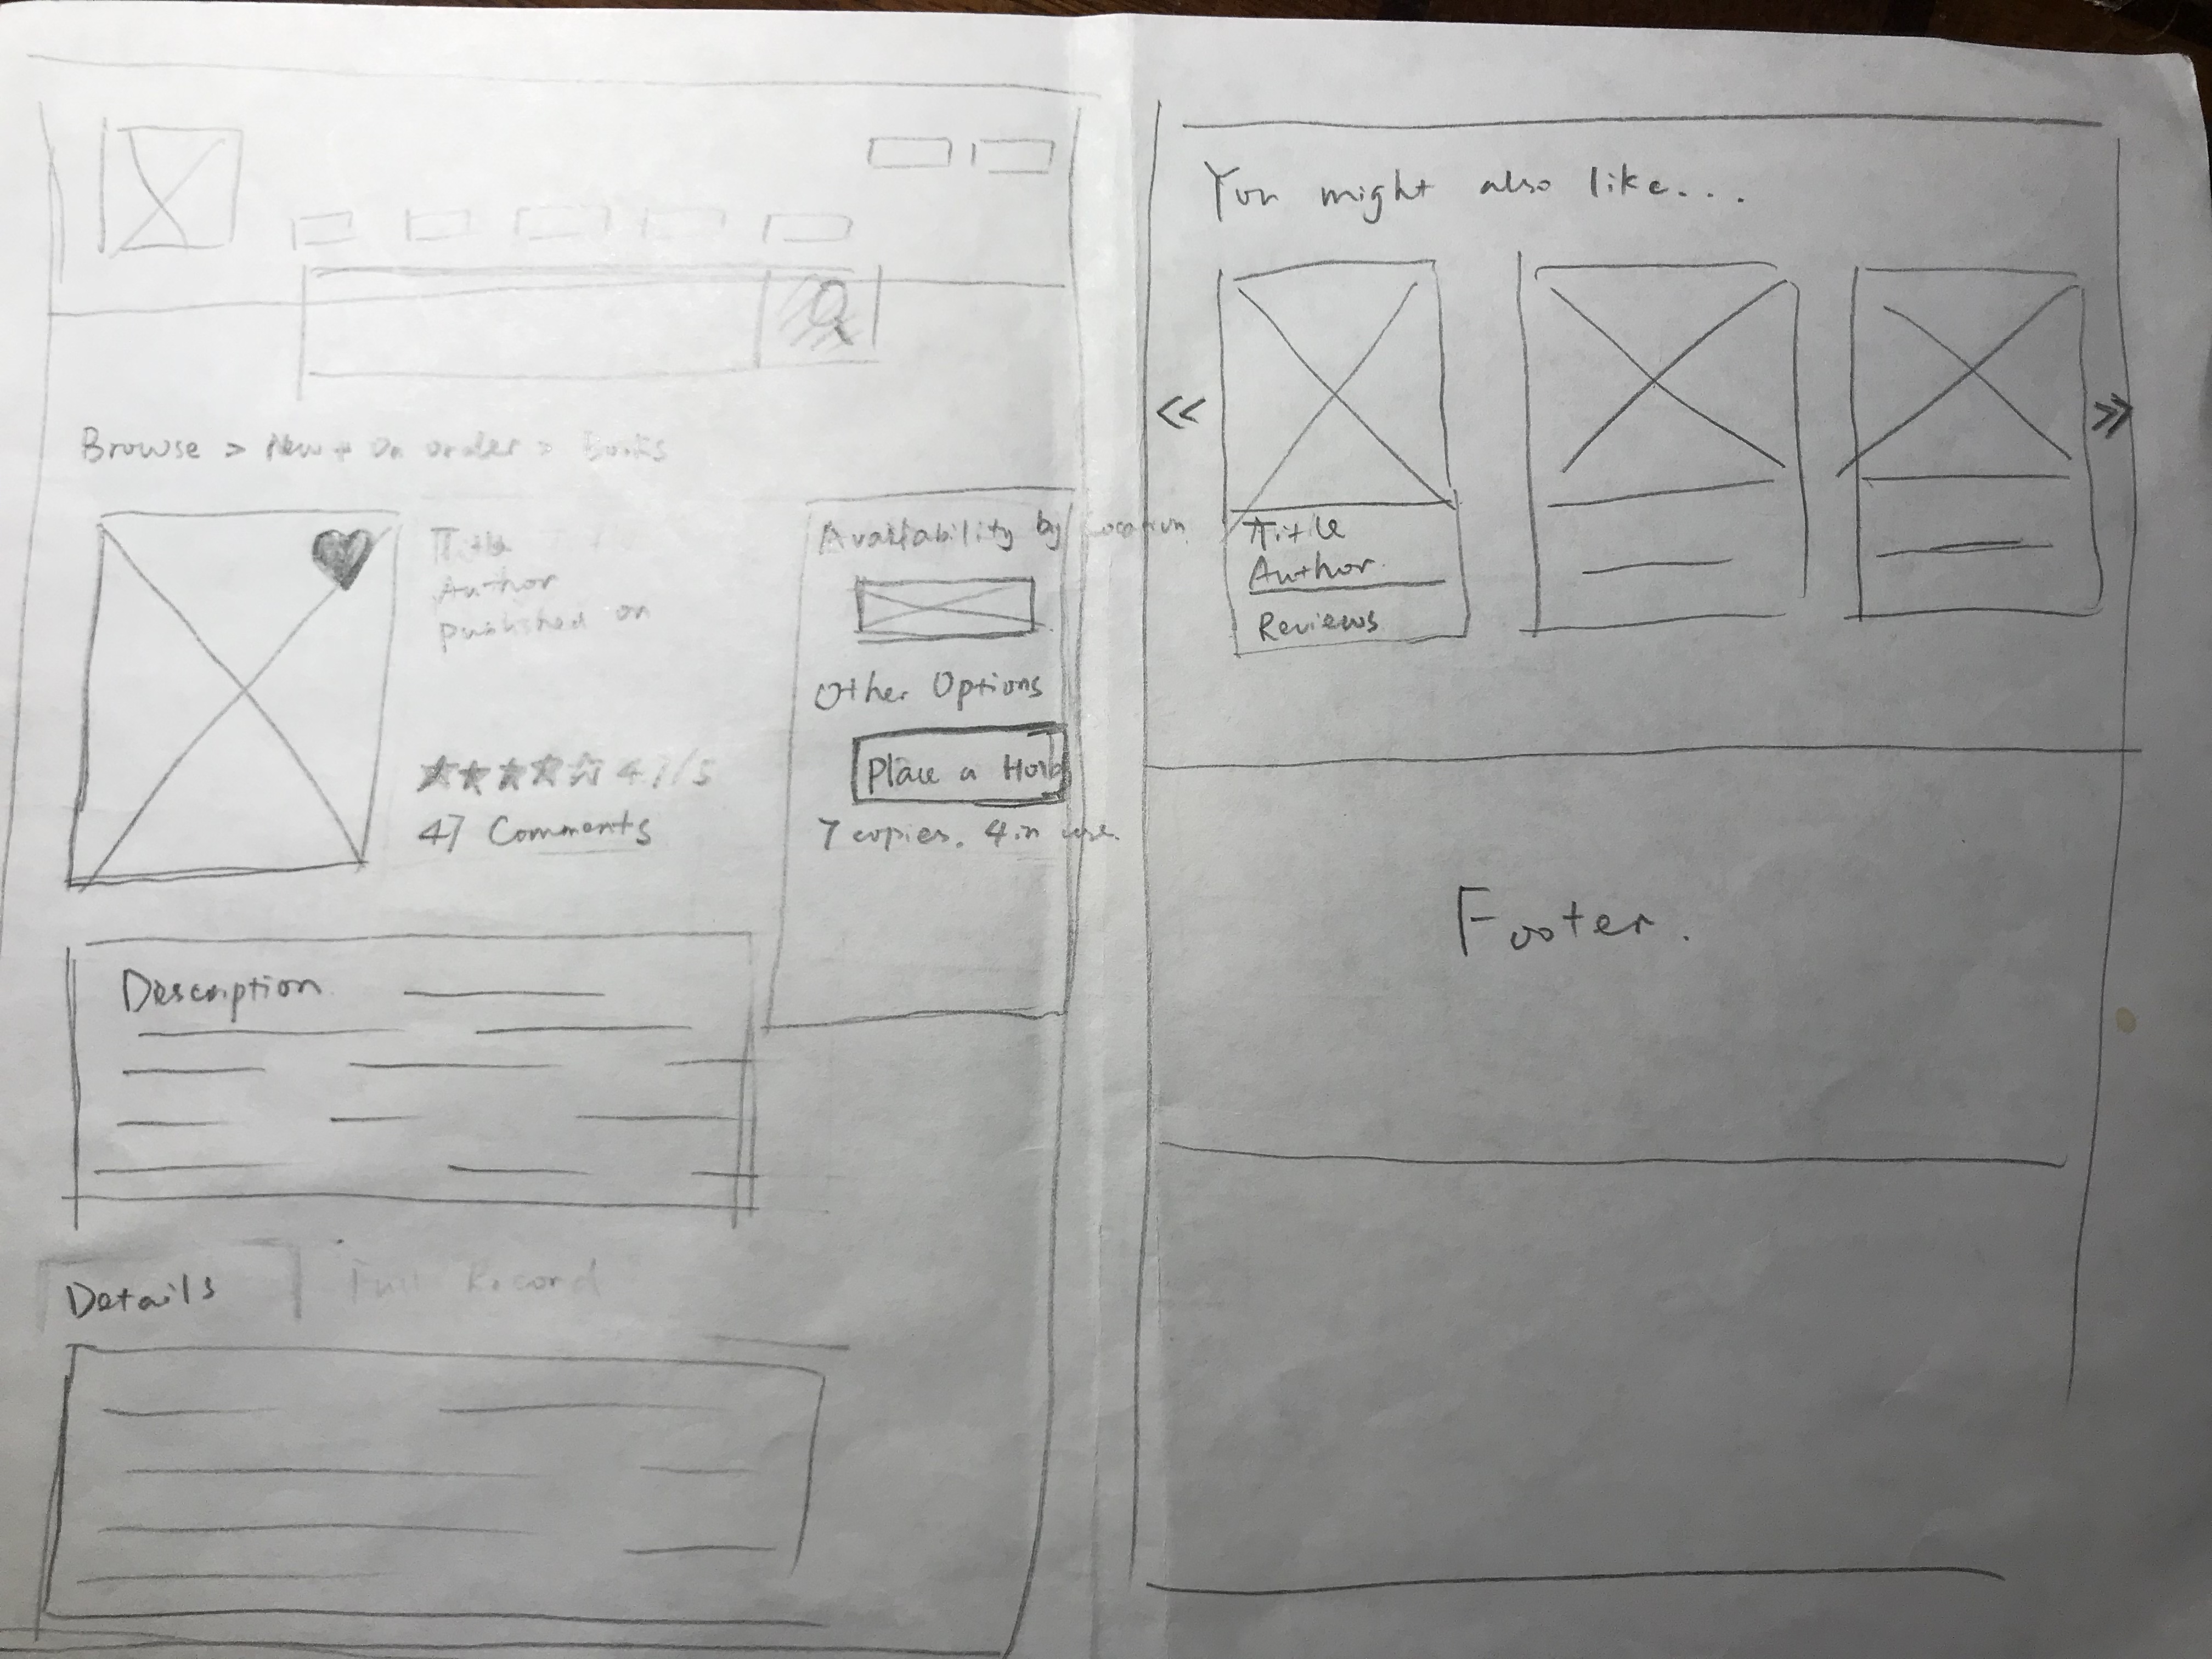 Browse > New + On order > Books
Title
Author
published on
4.7/5
47 Comments
Availability by Location
Other Options
Place a Hold
7 copies. 4 in use.
Description
Details
Full Record
You might also like...
«
»
Title
Author.
Reviews
Footer.